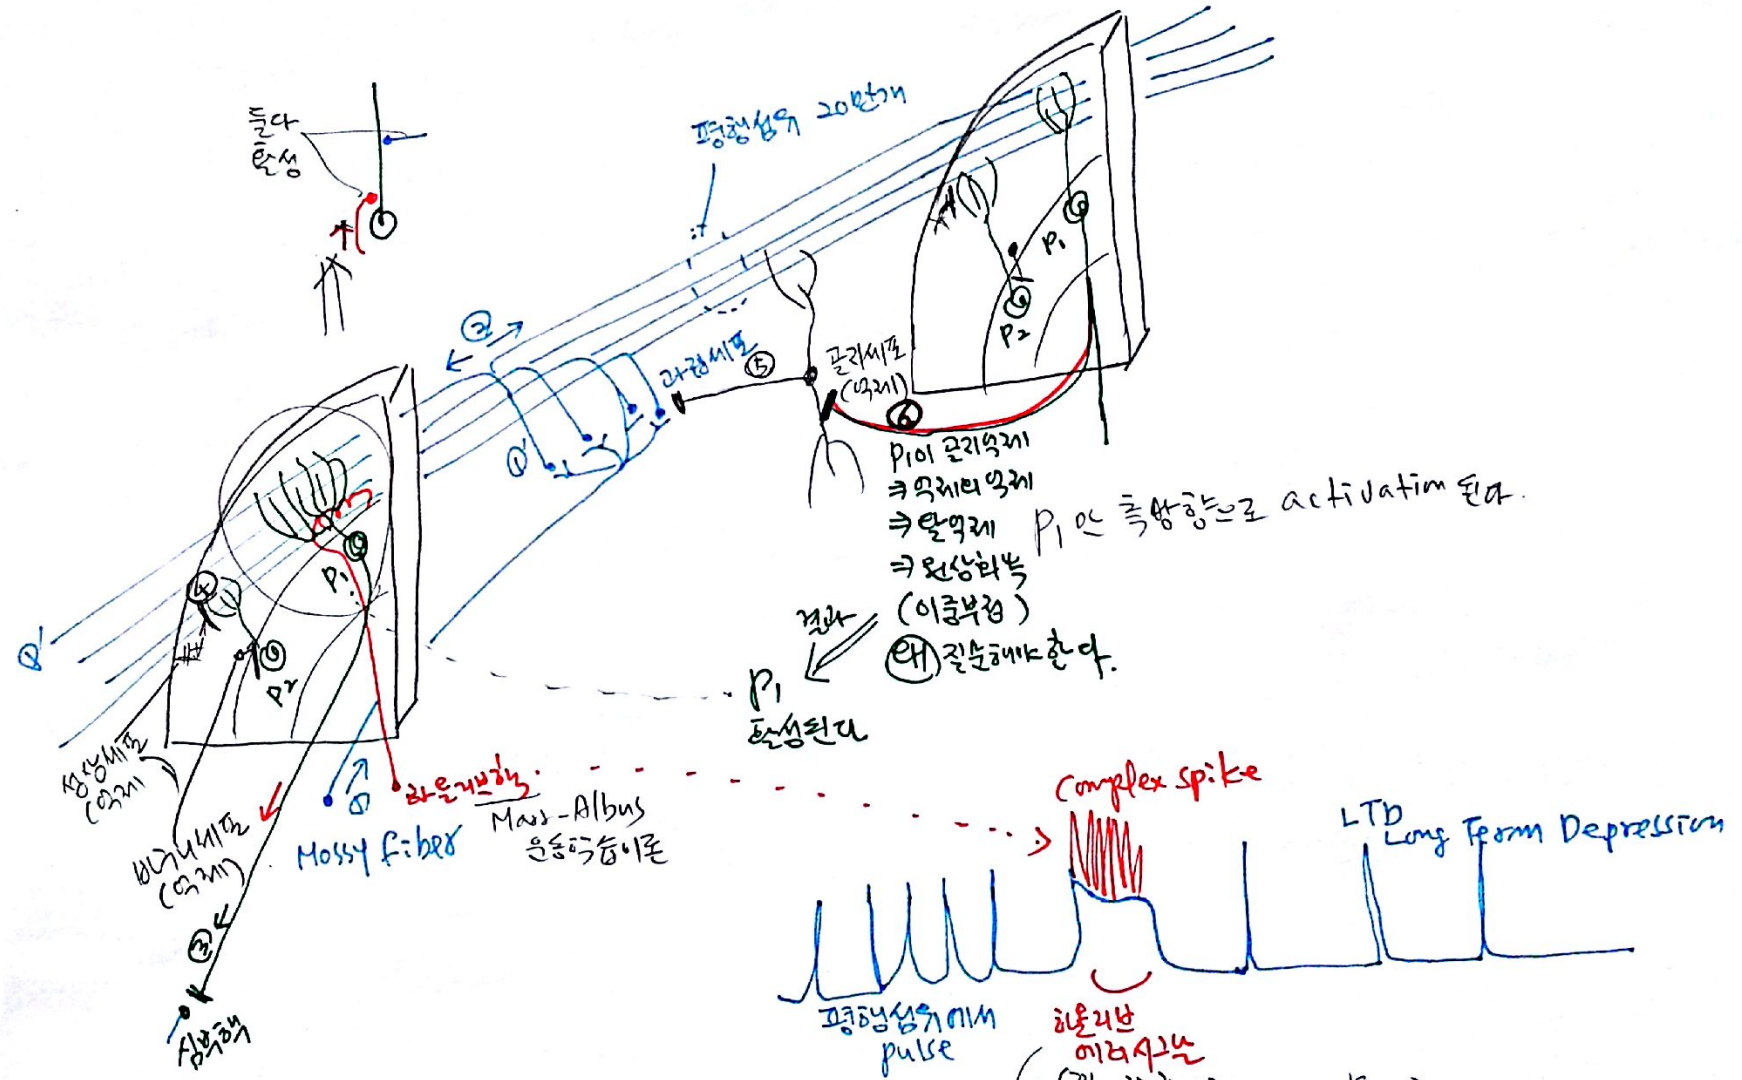 둘다
활성
평행섬유 20만개
②
과립세포
⑤
골지세포
(억제)
⑥
P1
P2
P1이 골지억제
⇒ 억제의 억제
⇒ 탈억제
⇒ 원상회복
(이중부정)
왜 질문해야 한다.
P1은 측방향으로 activation 된다.
결과
P1
활성된다
①'
①'
④
P1
P2
성상세포
(억제
바구니세포
(억제)
①
Mossy fiber
하올리브핵
Marr-Albus
운동학습이론
③
심부핵
Complex spike
LTD
Long Term Depression
평행섬유에서
pulse
하올리브
에러시그널